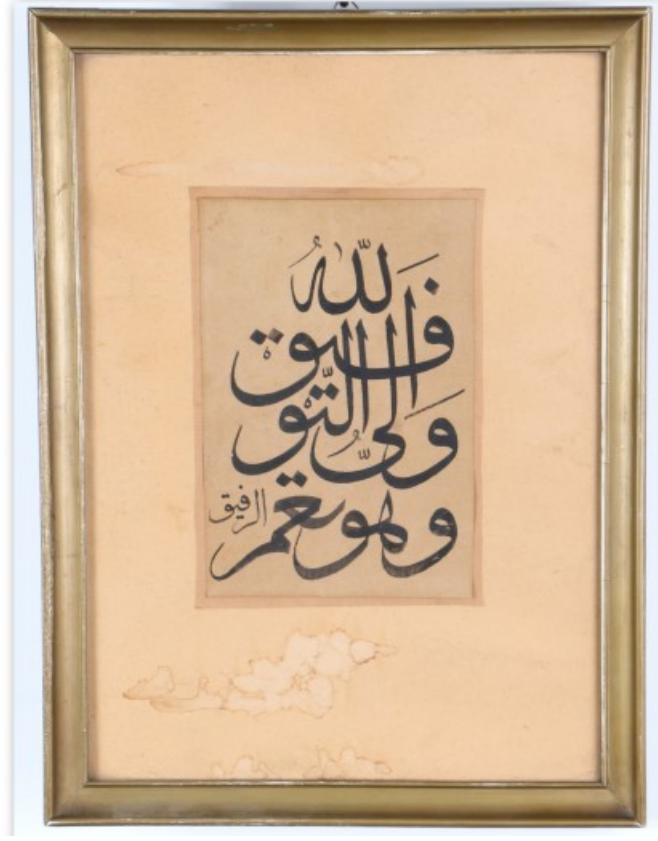 الله
وَلىّ التّو
فيق
وهو نعم الرفيق